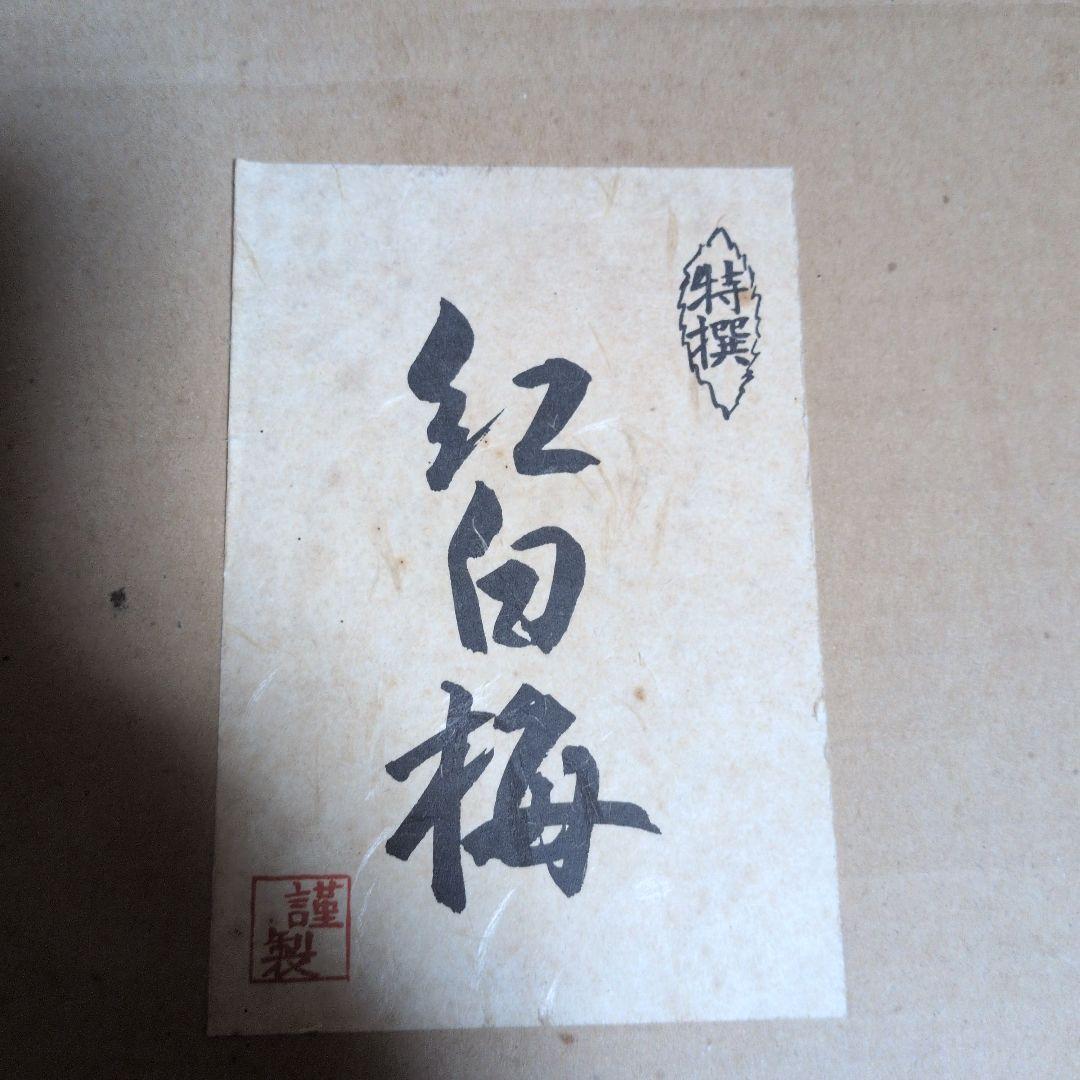 特撰
紅白梅
謹製